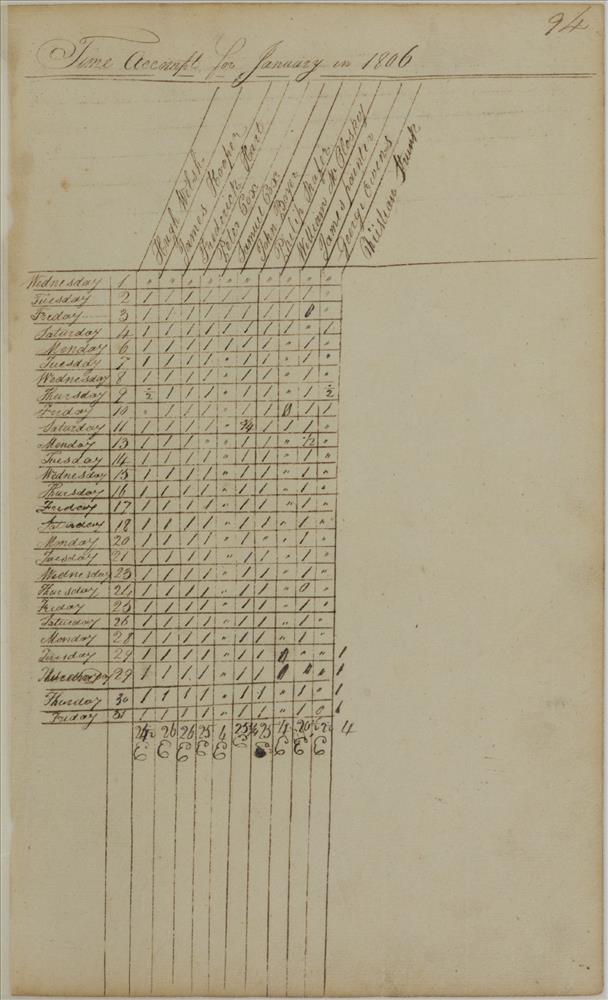 94
Time Accompt for January in 1806
Hugh Welsh
James Hooper
Frederick Hart
Peter Cox
Samuel Cox
John Boyer
Philip Shafer
William Mc Closkey
James painter
George Owens
Christian Shunk
Wednesday 1 " " " " " " " " " "
Tuesday 2 1 1 1 1 1 1 1 1 1 "
Friday 3 1 1 1 1 1 1 1 1 0 "
Saturday 4 1 1 1 1 1 1 1 1 " 1
Monday 6 1 1 1 1 " 1 1 " 1 "
Tuesday 7 1 1 1 1 " 1 1 " 1 "
Wednesday 8 1 1 1 1 " 1 1 " 1 "
Thursday 9 1/2 1 1 1 " 1 1 " 1 1/2
Friday 10 " 1 1 1 " 1 1 0 1 1
Saturday 11 1 1 1 1 " 3/4 1 1 1 "
Monday 13 1 1 1 " " 1 1 " 1/2 "
Tuesday 14 1 1 1 1 " 1 1 " 1 "
Wednesday 15 1 1 1 1 " 1 1 " 1 "
Thursday 16 1 1 1 1 " 1 1 " 1 "
Friday 17 1 1 1 1 " 1 1 " 1 "
Saturday 18 1 1 1 1 " 1 1 " 1 "
Monday 20 1 1 1 1 " 1 " " 1 "
Tuesday 21 1 1 1 1 " 1 1 " 1 "
Wednesday 23 1 1 1 1 " 1 1 " 1 "
Thursday 24 1 1 1 1 " 1 1 " 0 "
Friday 25 1 1 1 1 " 1 1 " 1 "
Saturday 26 1 1 1 1 " 1 1 " 1 "
Monday 28 1 1 1 1 " 1 1 " 1 "
Tuesday 29 1 1 1 1 " 1 1 0 " " 1
29 1 1 1 1 " 1 1 0 0 " 1
Thursday 30 1 1 1 1 " 1 1 " 1 " 1
Friday 31 1 1 1 1 " 1 1 " 1 0 1
24 1/2 26 26 25 4 25 3/4 25 4 20 1/2 4